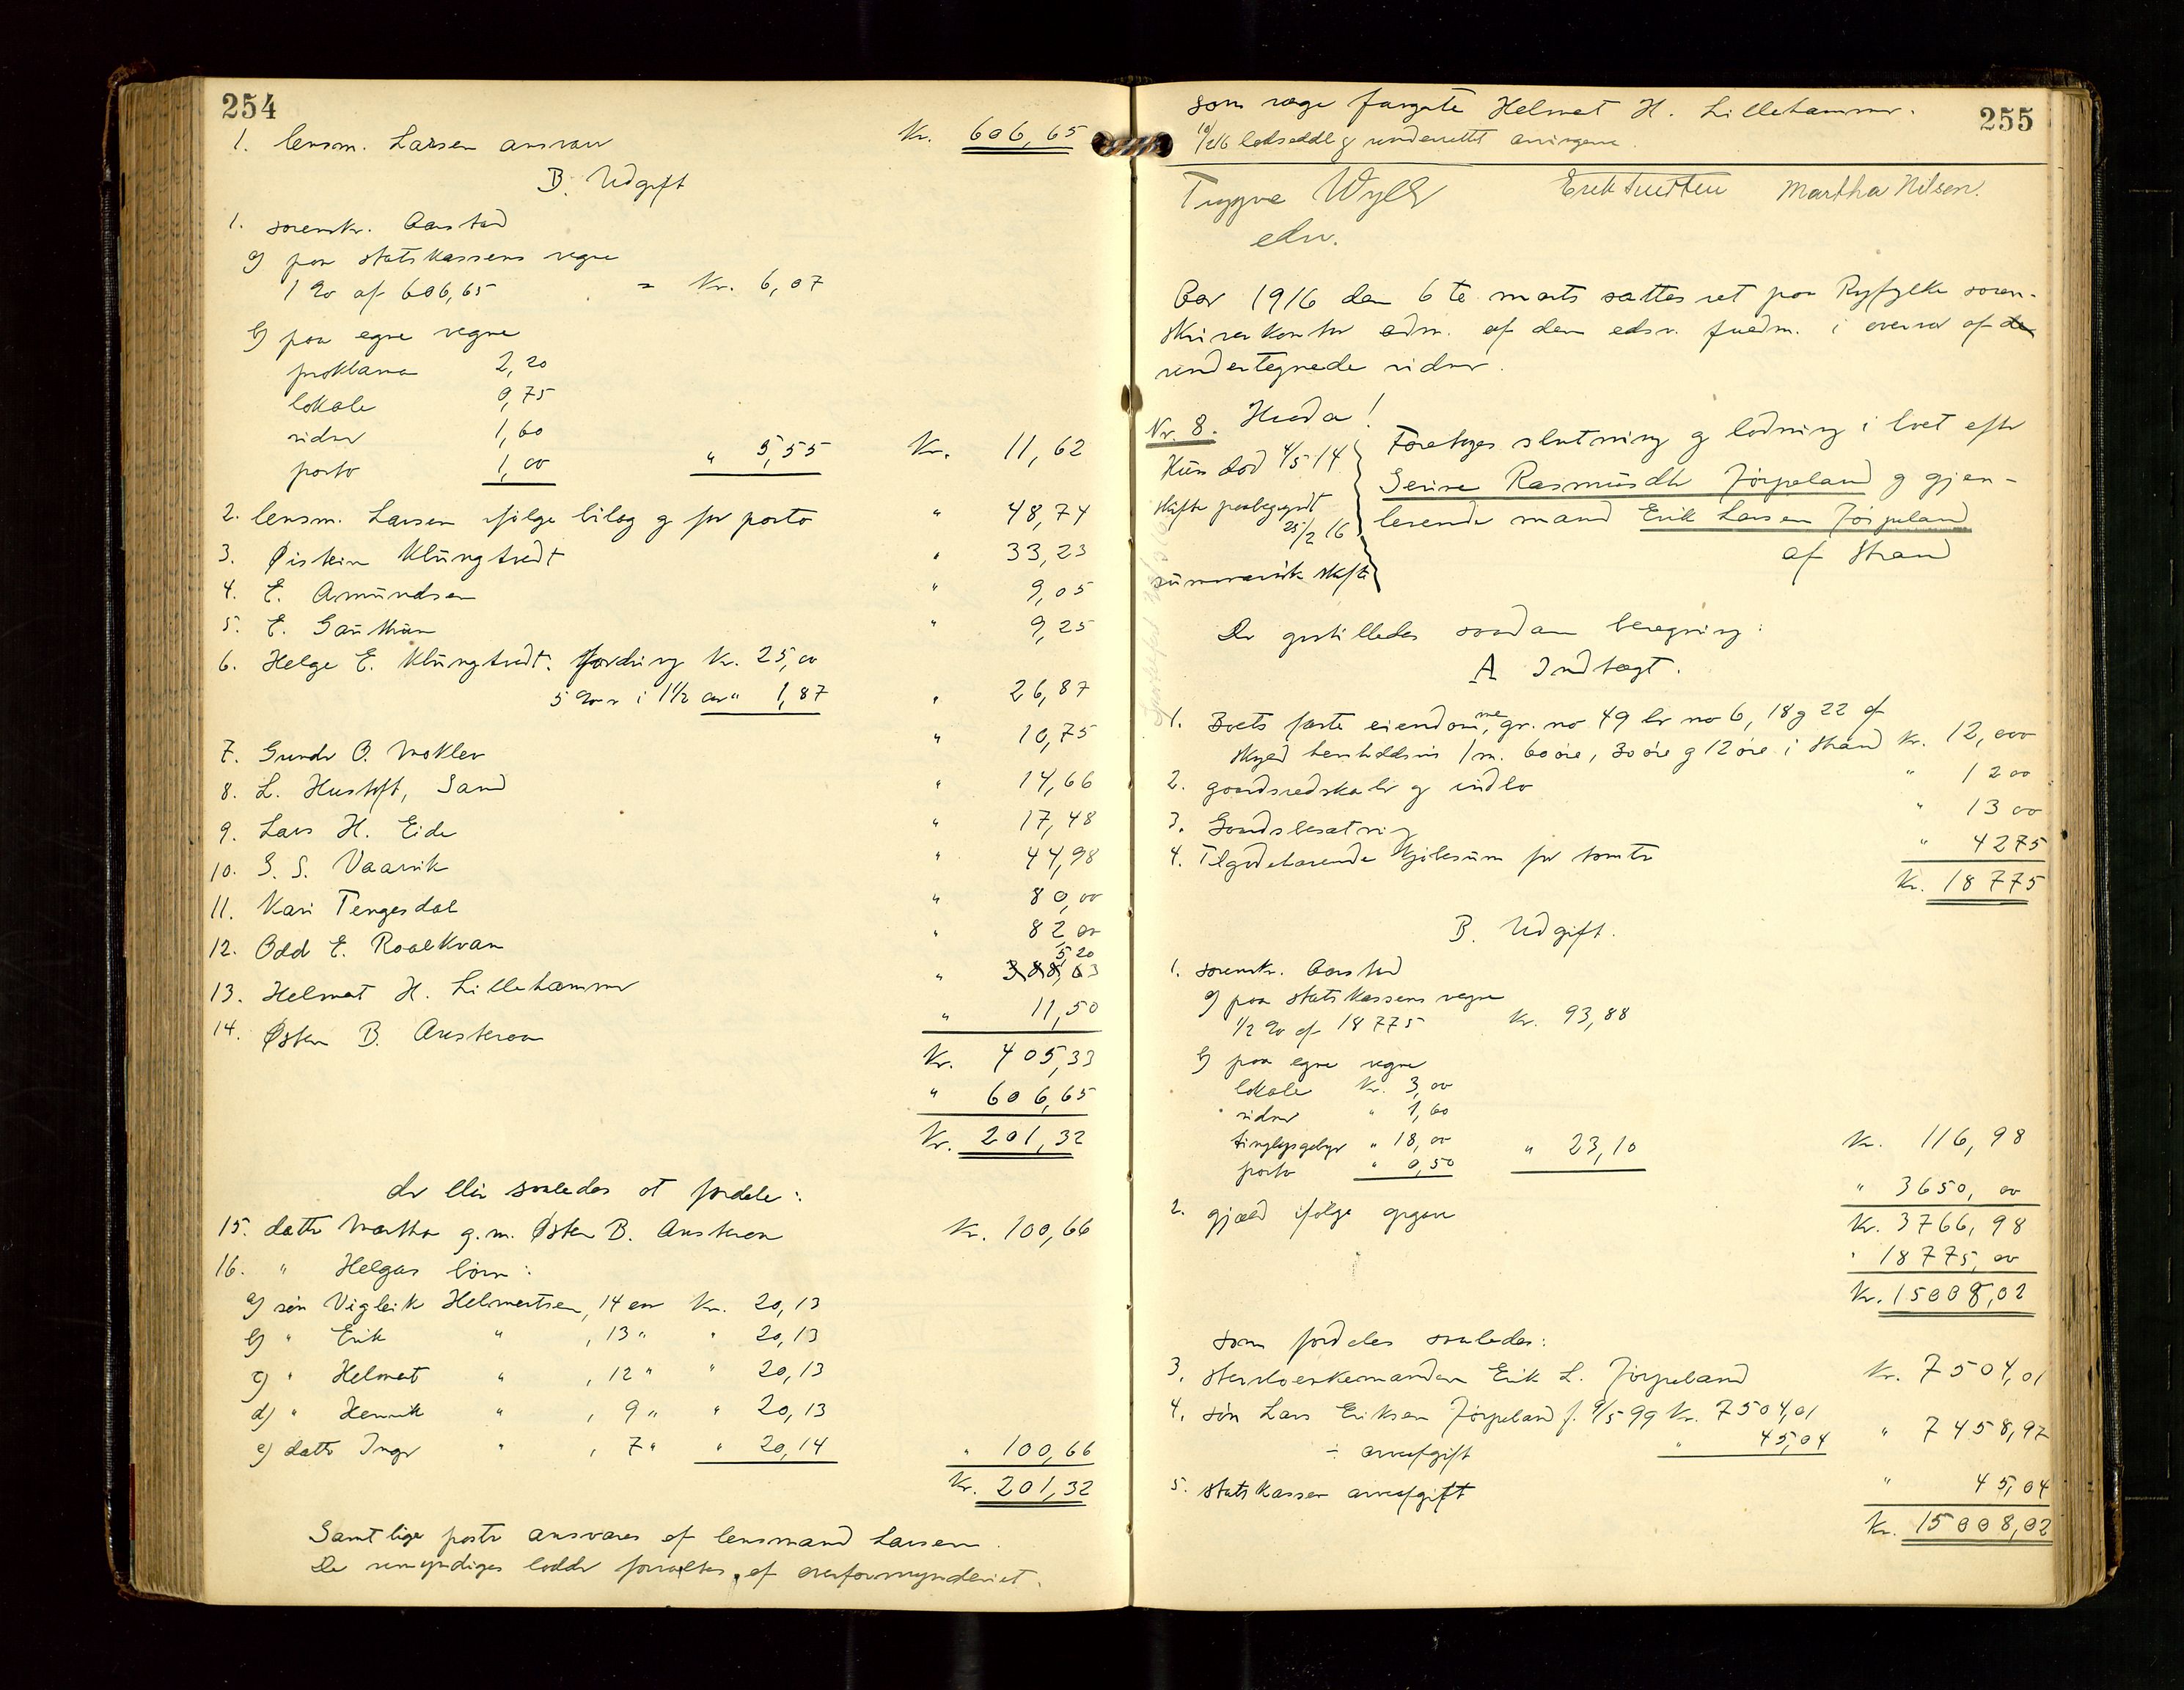 254
1. lensm. Larsen ansvar Kr. 606,65
B. Udgift
1. sorenskr. Aarstad
a) paa statskassens vegne
1 % af 606,65 = Kr. 6,07
b) paa egne vegne
proklama 2,20
lokale 0,75
vidner 1,60
porto 1,00 " 5,55 Kr. 11,62
2. lensm. Larsen ifølge bilag og for porto " 48,74
3. Øistein Klungtvedt " 33,23
4. E. Amundsen " 9,05
5. E. Gauthun " 9,25
6. Helge E. Klungtvedt. fordring Kr. 25,00
5 % r i 1 1/2 aar " 1,87 " 26,87
7. Gunder O. Moklev " 10,75
8. L. Hustoft, Sand " 14,66
9. Lars H. Eide " 17,48
10. S. S. Vaarvik " 44,98
11. Kari Tengesdal " 80,00
12. Odd E. Roalkvam " 82,00
5,20
13. Helmet H. Lillehammer " 388,63
14. Østen B. Austeraa " 11,50
Kr. 405,33
" 606,65
Kr. 201,32
der blir saaledes at fordele:
15. datter Martha g.m. Østen B. Austeraa Kr. 100,66
16. " Helgas børn:
a) søn Vigleik Helmertsen, 14 aar Kr. 20,13
b) " Erik " , 13 " " 20,13
c) " Helmert " , 12 " " 20,13
d) " Henrik " , 9 " " 20,13
e) datter Inger " , 7 " " 20,14 " 100,66
Kr. 201,32
Samtlige poster ansvares af lensmand Larsen.
De umyndiges lodder forvaltes af overformynderiet.
255
som verge fungerte Helmet H. Lillehammer.
10/2 16 lodseddel og underrettet arvingerne.
Trygve Wyller Erik Martha Nilsen.
edsv.
Aar 1916 den 6te marts sattes ret paa Ryfylke soren-
skriverkontor adm. af den edsv. fuldm. i overvær af de
undertegnede vidner.
Hvorda!
Nr. 8.
Hun død 4/5 14
skifte paabegyndt
25/2 16
summarisk skifte
Foretoges slutning og lodning i boet efter
Serine Rasmusdtr Jørpeland og gjen-
levende mand Erik Larsen Jørpeland
af Strand
Der opstilledes saadan beregning:
A Indtægt.
1. Boets faste eiendomme, gr. no 49 br no 6, 18 og 22 af
skyld henholdsvis 1 m. 60 øre, 30 øre og 12 øre i Strand Kr. 12,000
2. gaardsredskaber og indbo " 1200
3. Gaardsbesætning " 1300
4. Tilgodehavende kjøbesum for tomter " 4275
Kr. 18775
B. Udgift.
1. sorenskr. Aarstad
a) paa statskassens vegne
1/2 % af 18775 Kr. 93,88
b) paa egne vegne
lokale Kr. 3,00
vidner " 1,60
tinglysgebyr " 18,00
porto " 0,50 " 23,10 Kr. 116,98
2. gjæld ifølge opgave " 3650,00
Kr. 3766,98
" 18775,00
Kr. 15008,02
som fordeles saaledes:
3. sterboenkemanden Erik L. Jørpeland Kr. 7504,01
4. søn Lars Eriksen Jørpeland f. 9/5 99 Kr. 7504,01
÷ arveafgift " 45,04 " 7458,97
5. statskassen arveafgift " 45,04
Kr. 15008,02